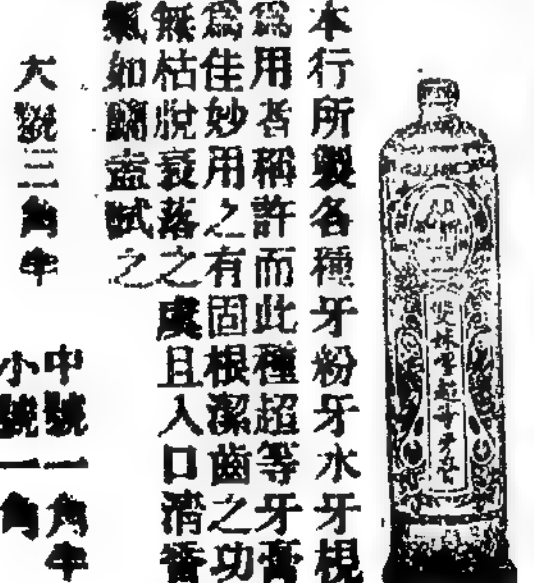 本行所製各種牙粉牙水牙梘
為用者稱許而此種超等牙膏
為佳妙用之有固根潔齒之功
無枯脫衰落之虞且入口清香
氣如蘭盍試之
大號三角半
中號一角半
小號一角
雙妹嚜超等牙膏